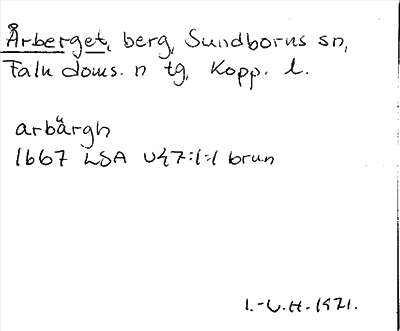 Årberget, berg, Sundborns sn,
Falu doms. n tg, Kopp. l.
arbärgh
1667 LSA U47:1:1 brun
L.-U.H. 1971.